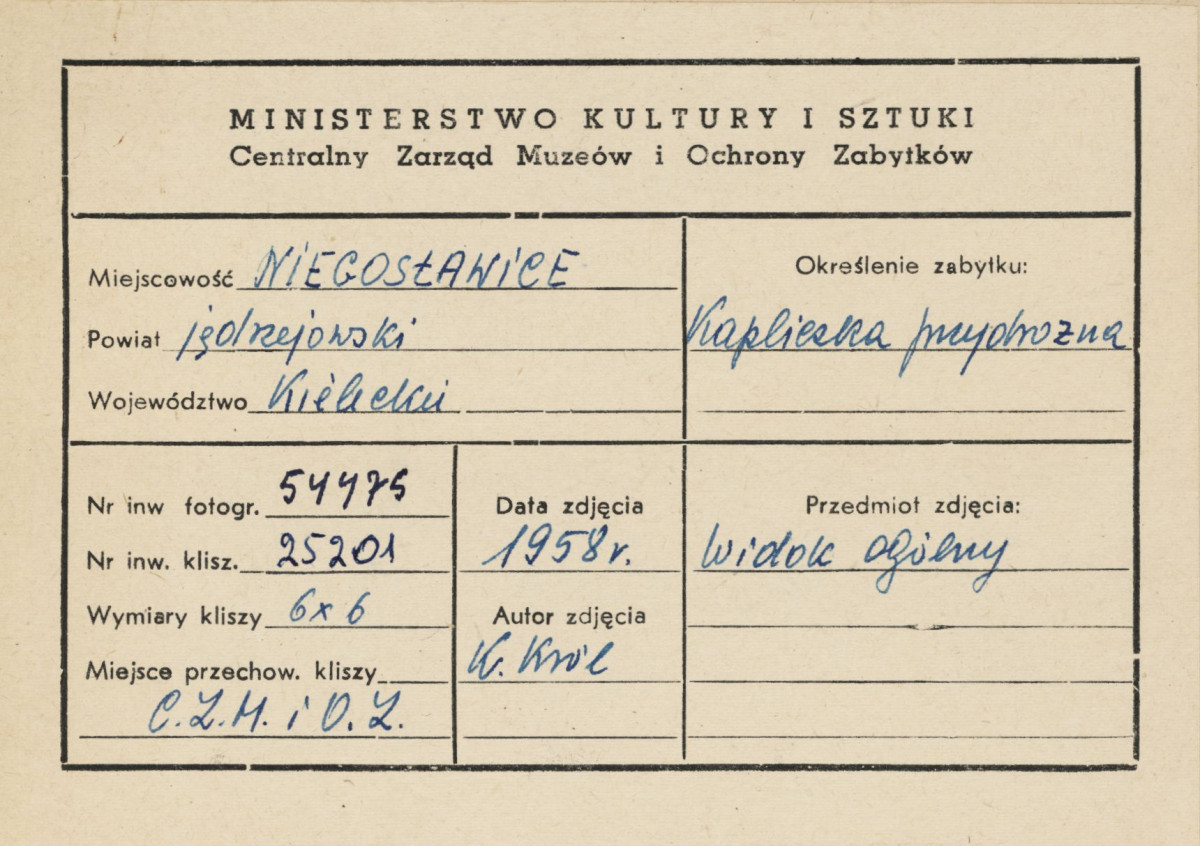 MINISTERSTWO KULTURY I SZTUKI
Centralny Zarząd Muzeów i Ochrony Zabytków
Miejscowość NIEGOSŁAWICE
Powiat jędrzejowski
Województwo Kieleckie
Określenie zabytku:
Kapliczka przydrożna
Nr inw fotogr. 54475
Nr inw. klisz. 25201
Wymiary kliszy 6x6
Miejsce przechow. kliszy
C.Z.M. i O.Z.
Data zdjęcia
1958 r.
Autor zdjęcia
K. Król
Przedmiot zdjęcia:
Widok ogólny